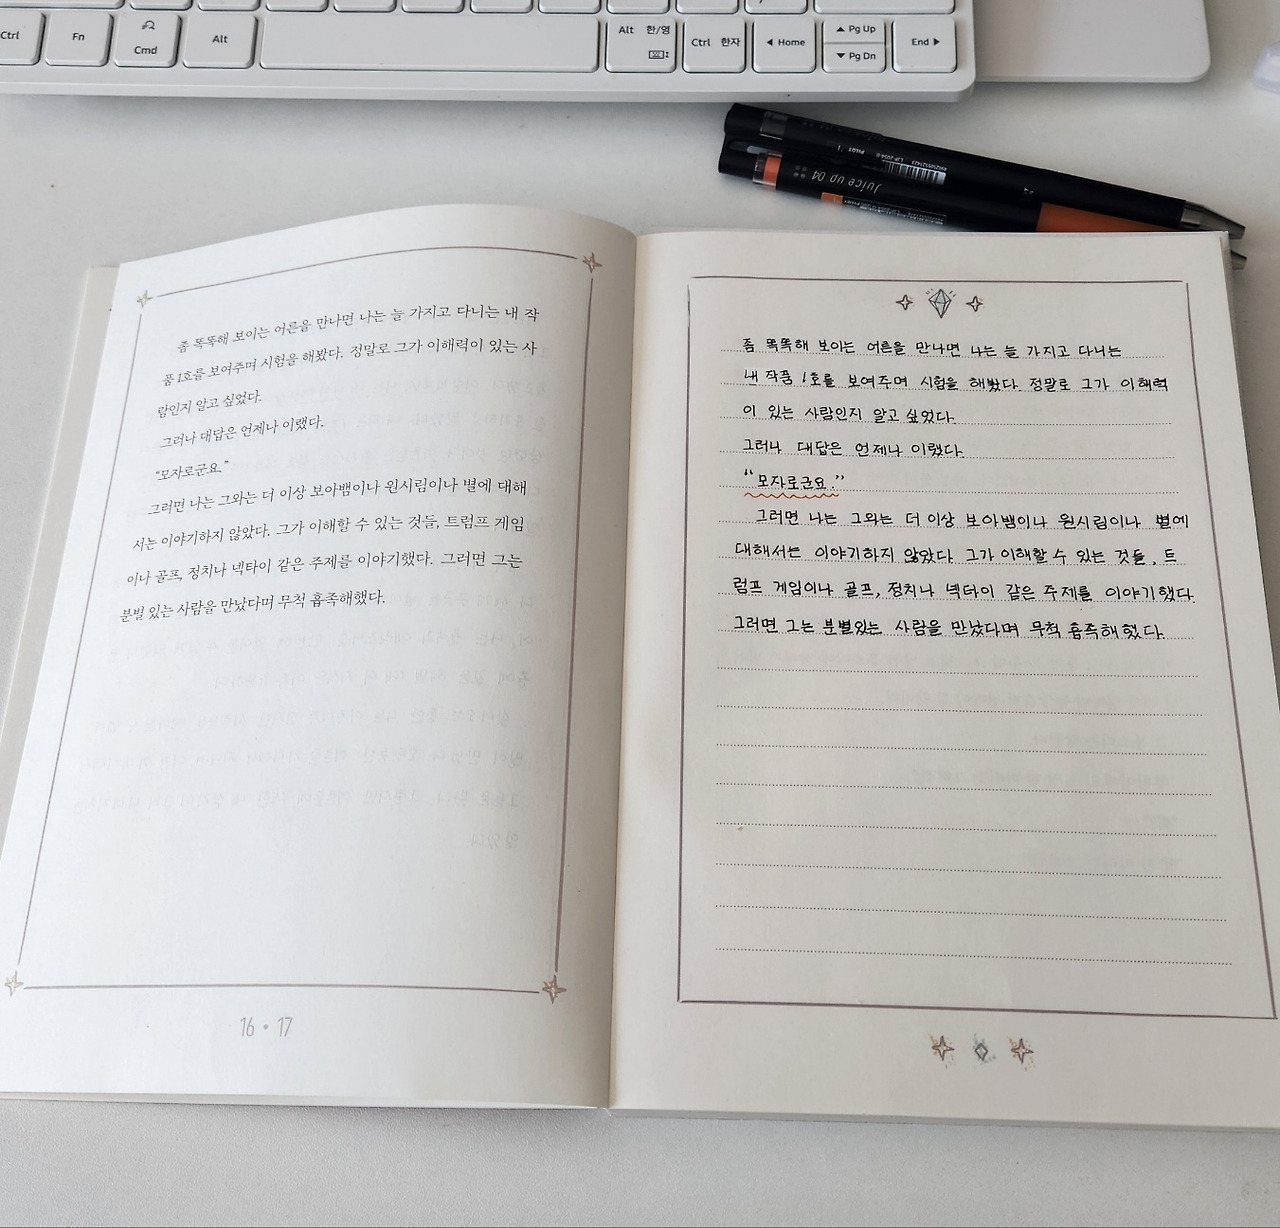 Ctrl
Fn
Cmd
Alt
Alt 한/영
Ctrl 한자
◀ Home
▲ Pg Up
▼ Pg Dn
End ▶
PILOT
Juice up 04
좀 똑똑해 보이는 어른을 만나면 나는 늘 가지고 다니는 내 작
품 1호를 보여주며 시험을 해봤다. 정말로 그가 이해력이 있는 사
람인지 알고 싶었다.
그러나 대답은 언제나 이랬다.
“모자로군요.”
그러면 나는 그와는 더 이상 보아뱀이나 원시림이나 별에 대해
서는 이야기하지 않았다. 그가 이해할 수 있는 것들, 트럼프 게임
이나 골프, 정치나 넥타이 같은 주제를 이야기했다. 그러면 그는
분별 있는 사람을 만났다며 무척 흡족해했다.
16 • 17
좀 똑똑해 보이는 어른을 만나면 나는 늘 가지고 다니는
내 작품 1호를 보여주며 시험을 해봤다. 정말로 그가 이해력
이 있는 사람인지 알고 싶었다.
그러나 대답은 언제나 이랬다.
“모자로군요.”
그러면 나는 그와는 더 이상 보아뱀이나 원시림이나 별에
대해서는 이야기하지 않았다. 그가 이해할 수 있는 것들, 트
럼프 게임이나 골프, 정치나 넥타이 같은 주제를 이야기했다.
그러면 그는 분별있는 사람을 만났다며 무척 흡족해했다.